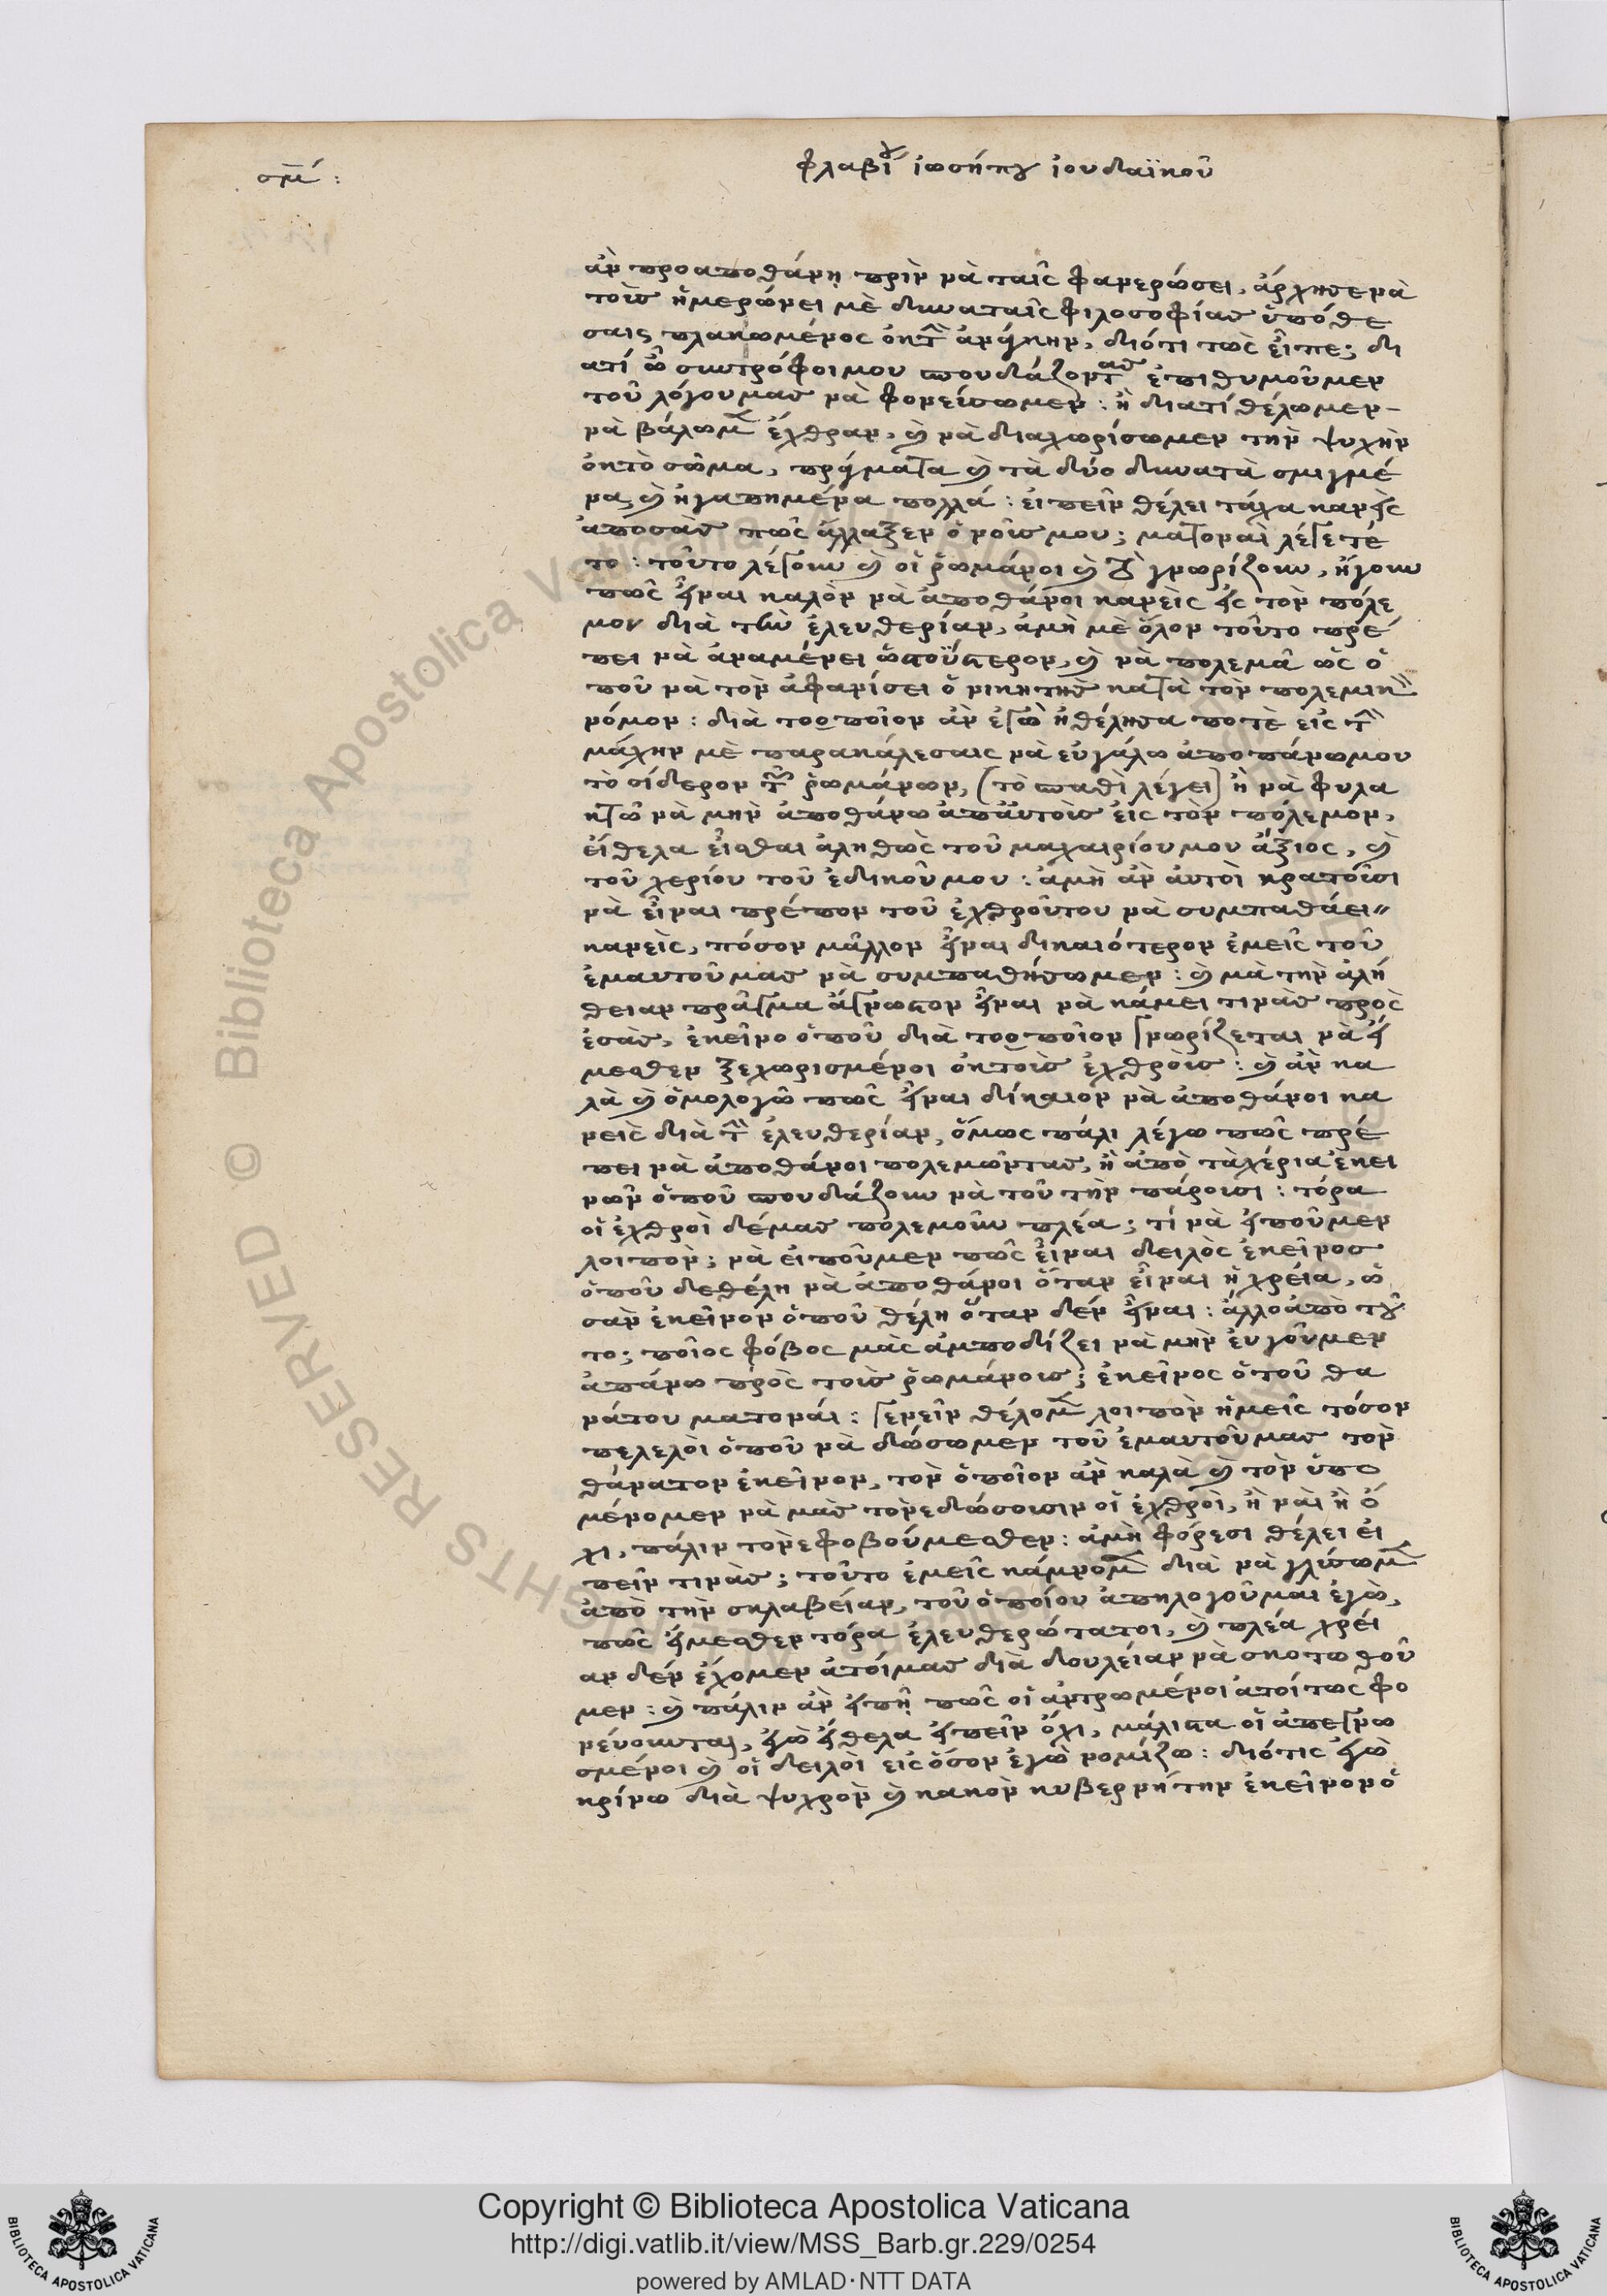 σμ´:
φλαβίου ἰωσήπου ἰουδαϊκοῦ
ἀν προαποθάνῃ πρὶν νὰ ταῖς φανερώσει, ἄρχησε νὰ
τοὺς ἡμερώνει μὲ δυναταῖς φιλοσοφίας ὑπόθε
σαις πλακωμένος ἐκ τὴν ἀνάγκην, διότι τὼς εἶπε; δι
ατί ὦ συντρόφοι μου σπουδάζοντας ἐπιθυμοῦμεν
τοῦ λόγου μας νὰ φονεύσωμεν: ἢ διατί θέλωμεν
νὰ βάλωμεν ἔχθραν, καὶ νὰ διαχωρίσωμεν τὴν ψυχὴν
ἐκ τὸ σῶμα, πράγματα καὶ τὰ δύο δυνατὰ σμιγμέ
να, καὶ ἠγαπημένα πολλά: εἰπεῖν θέλει τάχα κανεὶς
ἀπὸ σὰς πῶς ἄλλαξεν ὁ νοῦς μου; μα τοναὶ λέγετέ
το: τοῦτο λέγουν καὶ οἱ ῥωμάνοι καὶ τὸ γνωρίζουν, ἤγουν
πῶς εἶναι καλὸν νὰ ἀποθάνοι κανεὶς εἰς τὸν πόλε
μον διὰ τὴν ἐλευθερίαν, ἀμὴ μὲ ὅλον τοῦτο πρέ
πει νὰ ἀναμένει ὡστοὕστερον, καὶ νὰ πολεμᾶ ὡς ὁ
ποῦ νὰ τὸν ἀφανίσει ὁ νικητὴς κατὰ τὸν πολεμικὸν
νόμον: διὰ το ὁποῖον ἀν ἐγὼ ἠθέλησα ποτὲ εἰς τὴν
μάχην μὲ παρακάλεσαις νὰ εὐγάλω ἀπο πάνω μου
τὸ σίδερον τῶν ῥωμάνων, (τὸ σπαθὶ λέγει) ἢ νὰ φυλα
κτῶ νὰ μὴν ἀποθάνω ἀπαὐτοὺς εἰς τὸν πόλεμον,
εἴθελα εἶσθαι ἀληθὼς τοῦ μαχαιρίου μου ἄξιος, καὶ
τοῦ χερίου τοῦ ἐδικοῦ μου: ἀμὴ ἀν αὐτοὶ κρατοῦσι
νὰ εἶναι πρέπον τοῦ ἐχθροῦ του νὰ συμπαθάει
κανεὶς, πόσον μᾶλλον εἶναι δικαιότερον ἐμεῖς τοῦ
ἐμαυτοῦ μας νὰ συμπαθήσωμεν: καὶ μὰ τὴν ἀλή
θειαν πρᾶγμα ἄγνωστον εἶναι νὰ κάμει τινὰς πρὸς
ἐσὰς, ἐκεῖνο ὁποῦ διὰ το ὁποῖον γνωρίζεται νὰ εἴ
μεσθεν ξεχωρισμένοι ἐκ τοὺς ἐχθροὺς: καὶ ἀν κα
λὰ καὶ ὁμολογῶ πῶς εἶναι δίκαιον νὰ ἀποθάνοι κα
νεὶς διὰ τὴν ἐλευθερίαν, ὅμως πάλι λέγω πῶς πρέ
πει νὰ ἀποθάνοι πολεμῶντας, ἢ ἀπὸ τὰ χέρια ἐκει
νῶν ὁποῦ σπουδάζουν νὰ τοῦ τὴν πάροισι: τόρα
οἱ ἐχθροὶ δέ μας πολεμοῦν πλέα; τί νὰ εἰποῦμεν
λοιπὸν; νὰ εἰποῦμεν πῶς εἶναι δειλὸς ἐκεῖνος
ὁποῦ δε θέλη νὰ ἀποθάνοι ὅταν εἶναι ἡ χρεία, ὡ
σὰν ἐκεῖνον ὁποῦ θέλη ὅταν δὲν εἶναι: ἄλλο ἀπὸ τοῦ
το; ποῖος φόβος μὰς ἀμποδίζει νὰ μὴν εὐγοῦμεν
ἀπάνω πρὸς τοὺς ῥωμάνους; ἐκεῖνος ὁ τοῦ θα
νάτου ματοναί: γενεῖν θέλομεν λοιπὸν ἡμεῖς τόσον
πελελοὶ ὁποῦ νὰ δώσωμεν τοῦ ἐμαυτοῦ μας τὸν
θάνατον ἐκεῖνον, τὸν ὁποῖον ἀν καλὰ καὶ τὸν ὑπο
μένομεν νὰ μὰς τὸνε δώσουσιν οἱ ἐχθροὶ, ἢ ναὶ ἢ ὄ
χι, πάλιν τὸνε φοβούμεσθεν: ἀμὴ φόρεσι θέλει εἰ
πεῖν τινὰς; τοῦτο ἐμεῖς κάμνομεν διὰ νὰ γλύσωμεν
ἀπὸ τὴν σκλαβείαν, τοῦ ὁποίου ἀπηλογοῦμαι ἐγὼ,
πῶς εἴμεσθεν τόρα ἐλευθερώτατοι, καὶ πλέα χρεί
αν δὲν ἔχομεν ἀτοί μας διὰ δουλείαν νὰ σκοτωθοῦ
μεν: καὶ πάλιν ἀν εἰπῆ πῶς οἱ ἀντρωμένοι ἀτοί τως φο
νεύουνται, ἐγὼ εἴθελα εἰπεῖν ὄχι, μάλιστα οἱ ἀπεγνω
σμένοι καὶ οἱ δειλοὶ εἰς ὅσον ἐγὼ νομίζω: διότις ἐγὼ
κρίνω διὰ ψυχρὸν καὶ κακὸν κυβερνήτην ἐκεῖνον ὁ
Copyright © Biblioteca Apostolica Vaticana
http://digi.vatlib.it/view/MSS_Barb.gr.229/0254
powered by AMLAD·NTT DATA
BIBLIOTECA APOSTOLICA VATICANA
BIBLIOTECA APOSTOLICA VATICANA